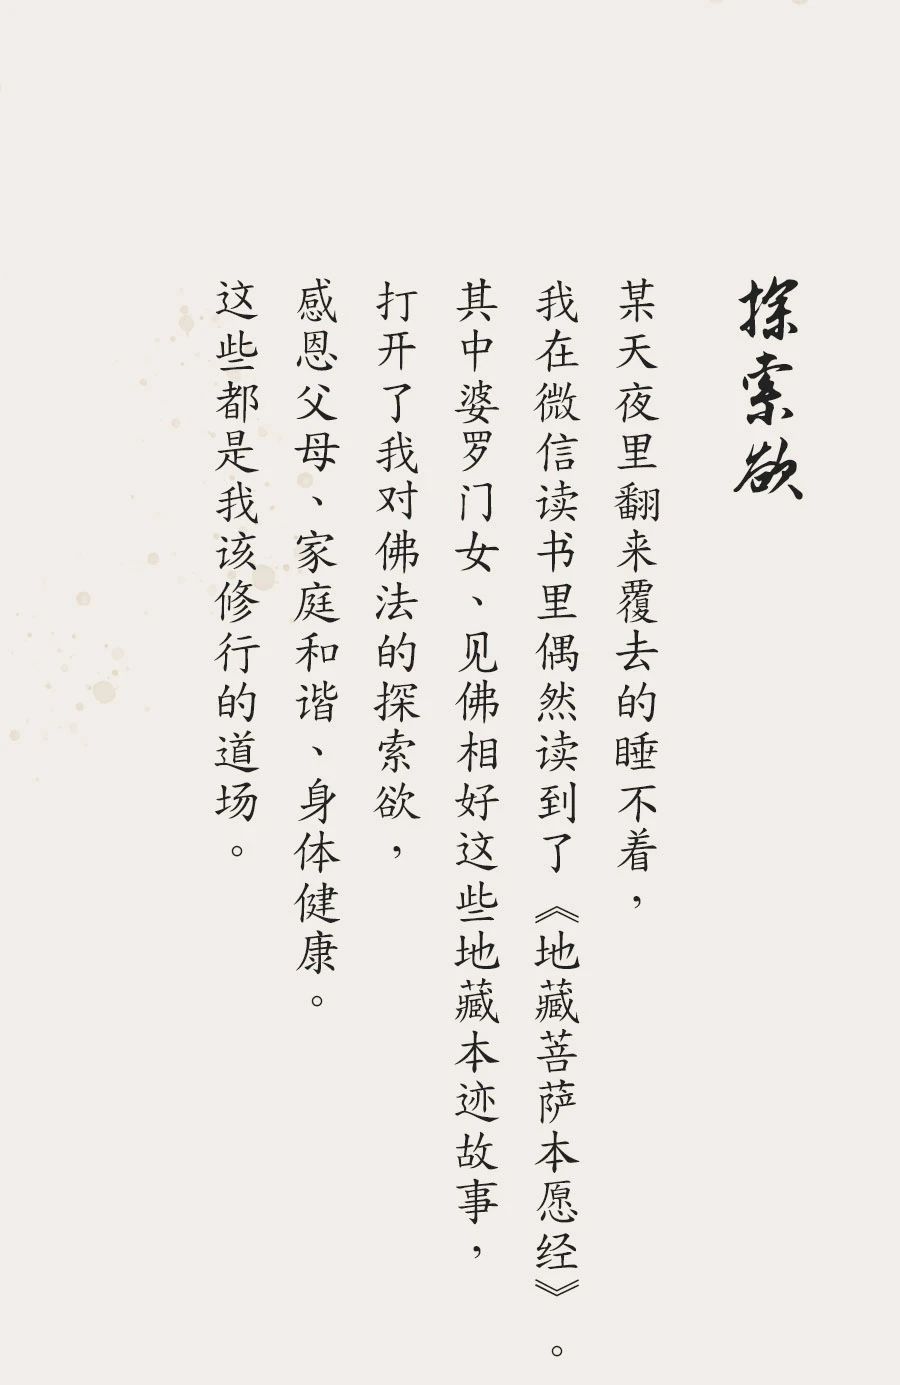 探索欲
某天夜里翻来覆去的睡不着，
我在微信读书里偶然读到了《地藏菩萨本愿经》。
其中婆罗门女、见佛相好这些地藏本迹故事，
打开了我对佛法的探索欲，
感恩父母、家庭和谐、身体健康。
这些都是我该修行的道场。